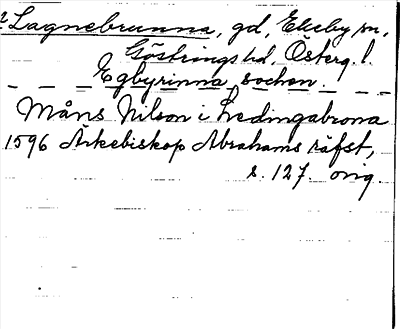 ? Lagnebrunna, gd, Ekeby sn,
Göstrings hd, Österg. l.
Egbyrinna sochen.
Måns Nilson i Ledingabrona
1596 Ärkebiskop Abrahams räfst,
s. 127. orig.